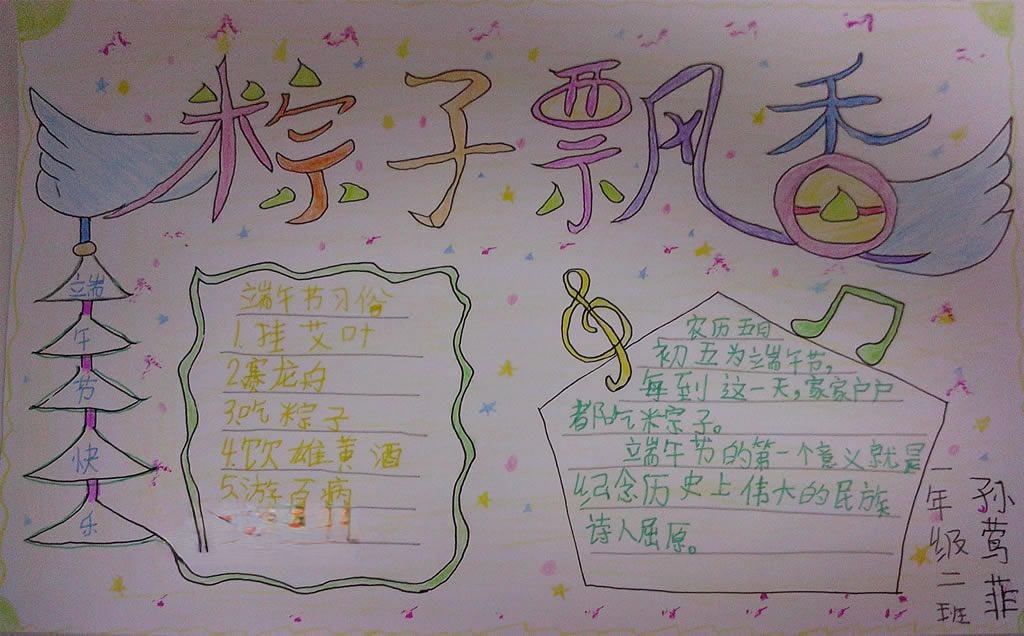 粽子飘香
端
午
节
快
乐
端午节习俗
1.挂艾叶
2.赛龙舟
3.吃粽子
4.饮雄黄酒
5.游百病
农历五日
初五为端午节,
每到这一天,家家户户
都吃粽子。
端午节的第一个意义就是
纪念历史上伟大的民族
诗人屈原。
一年级二班
孙莺菲